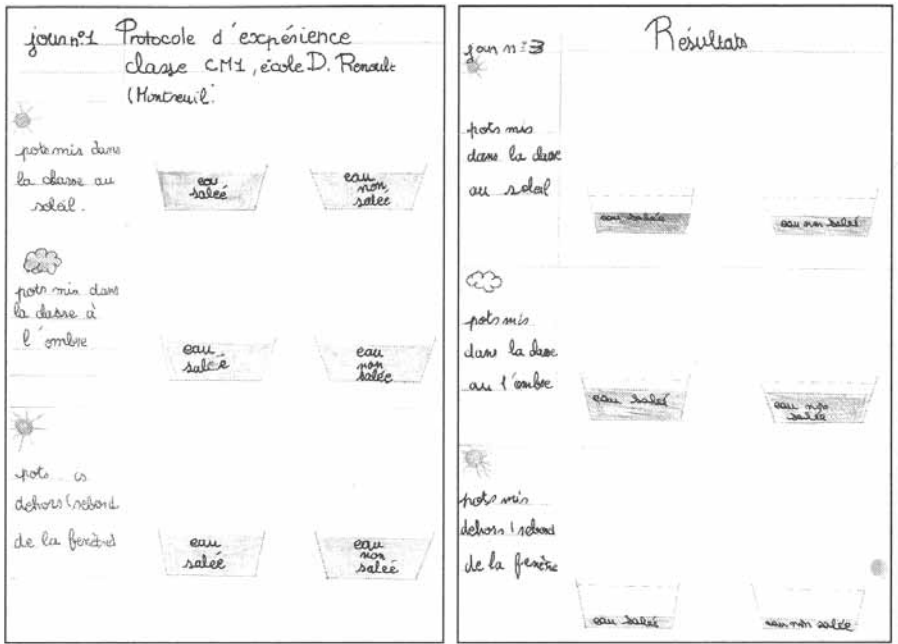 jour n°1 Protocole d'expérience
classe CM1, école D. Renoult
(Montreuil.
pots mis dans
la classe au
soleil.
eau
salée
eau
non
salée
pots mis dans
la classe à
l'ombre
eau
salée
eau
non
salée
pots
dehors (rebord
de la fenêtre)
eau
salée
eau
non
salée
Résultats
jour n°3
pots mis
dans la classe
au soleil
eau salée
eau non salée
pots mis
dans la classe
au l'ombre
eau salée
eau non
salée
pots mis
dehors (rebord
de la fenêtre
eau salée
eau non salée